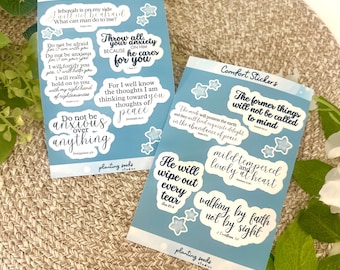 Jehovah is on my side
I will not be afraid.
What can man do to me?
Throw all
your anxiety
BECAUSE ON HIM
he cares
for you
Do not be afraid
for I am with you
Do not be anxious
for I am your God
I will fortify you
yes I will help you
I will really
hold on to you
with my right hand
of righteousness
For I well know
the thoughts I am
thinking toward you
thoughts of
peace
Do not be
anxious
over
anything
planting seeds
Comfort Stickers
The former things
will not be called
to mind
will possess the earth
and they will find exquisite delight
in the abundance of peace
mild-tempered
and
lowly at heart
He will
wipe out
every
tear
walking by faith
not by sight
planting seeds